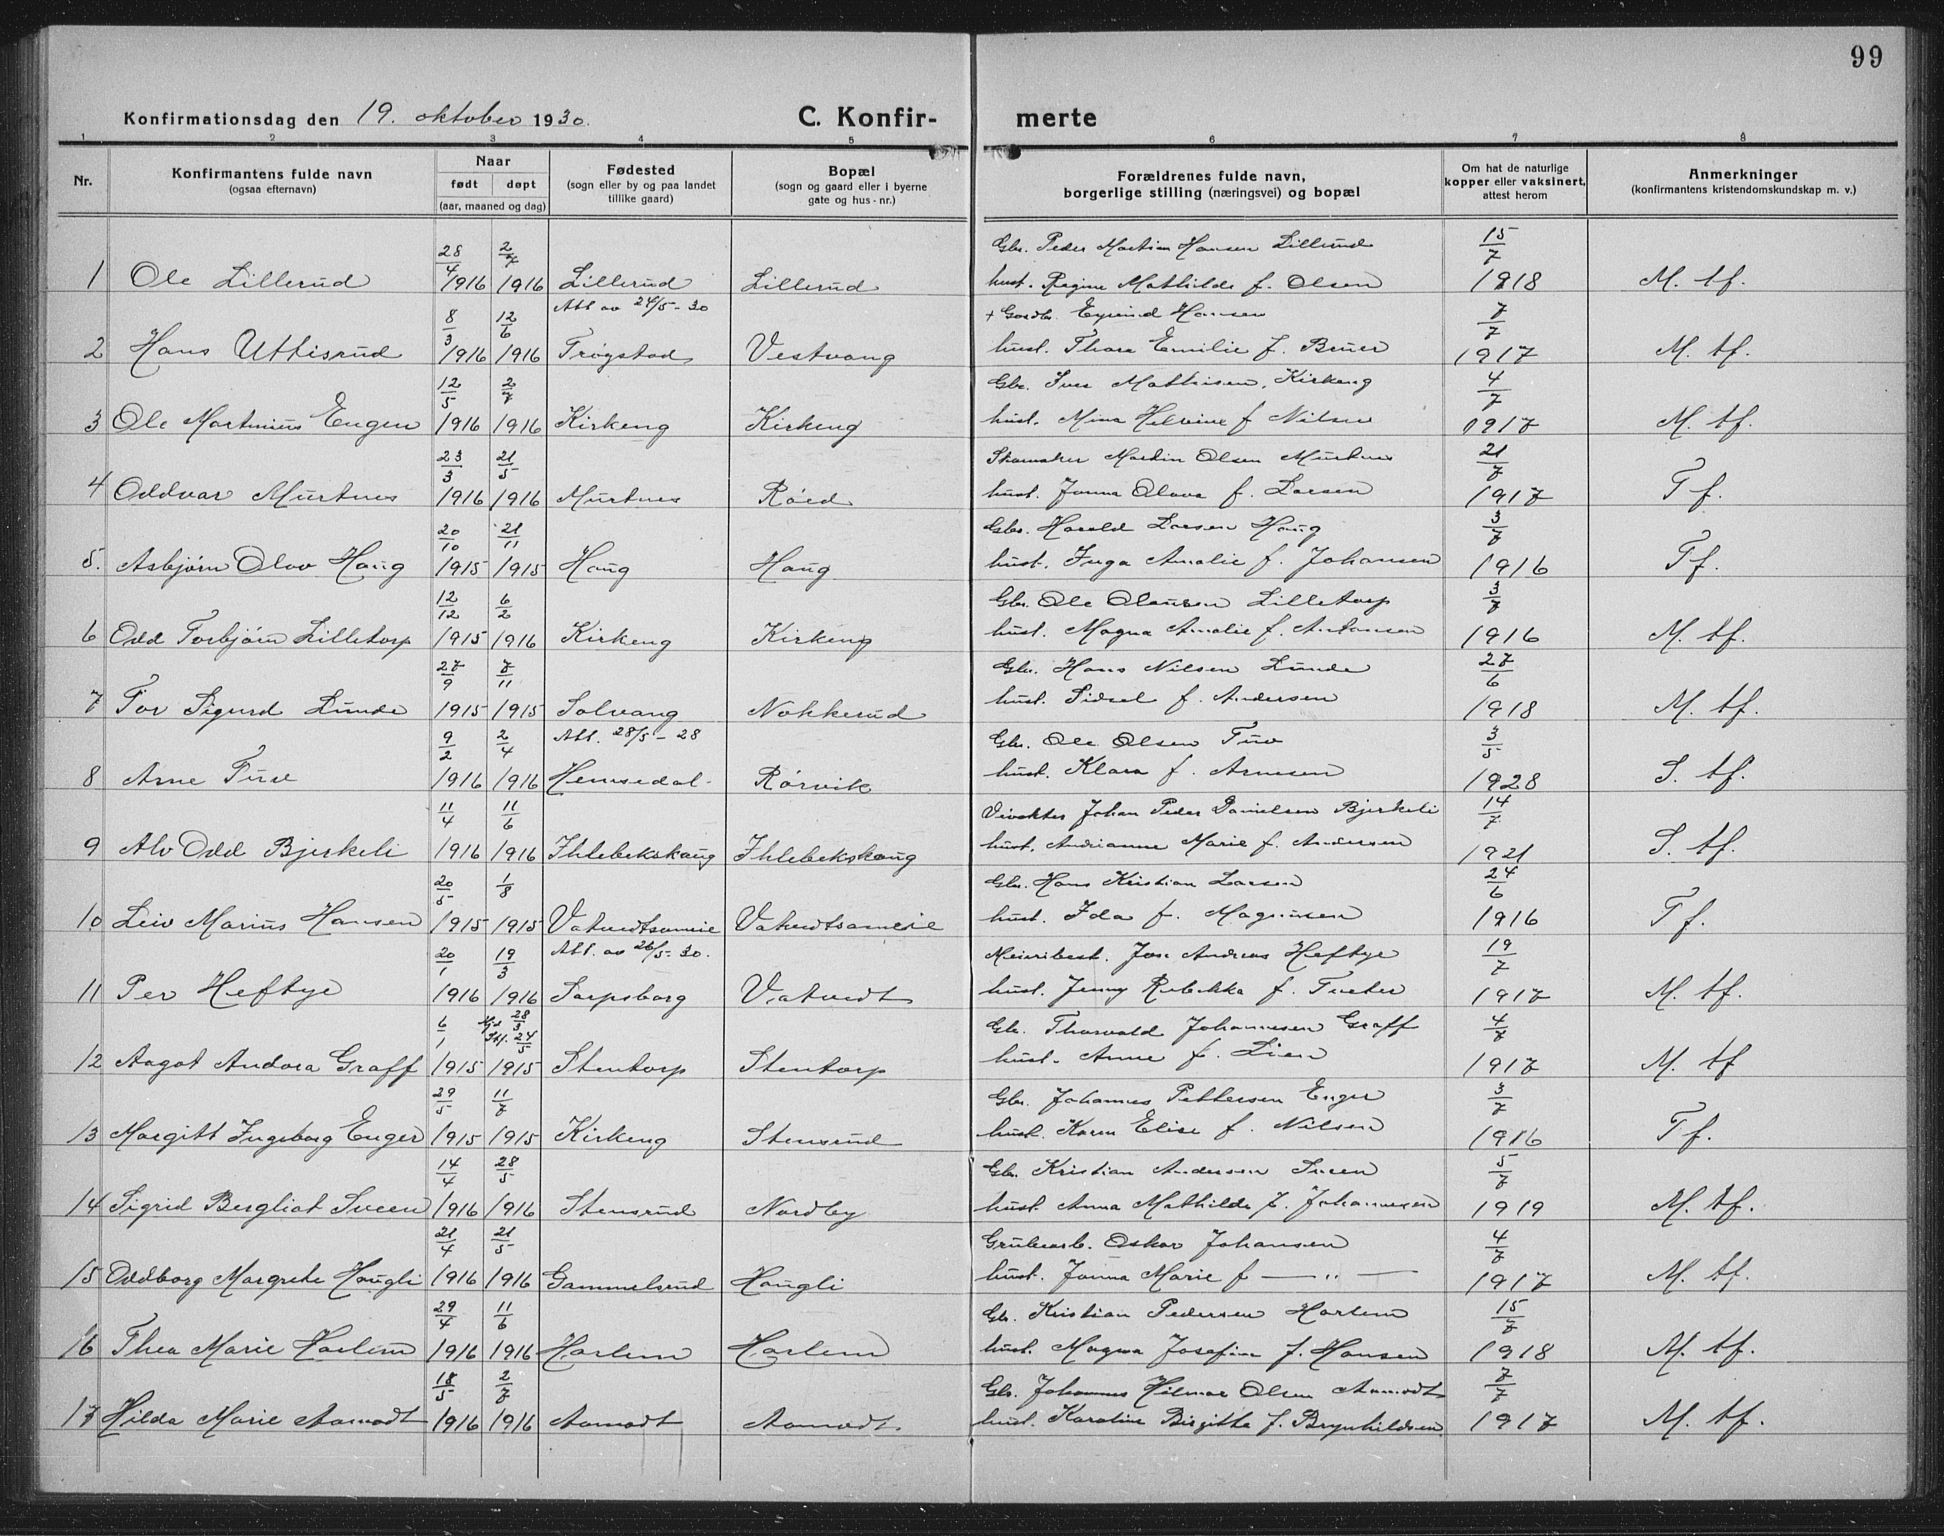 99
Konfirmationsdag den 19. oktober 1930. C. Konfir- merte
1 2 3 4 5 6 7 8
Nr. Konfirmantens fulde navn (ogsaa efternavn) Naar født døpt (aar, maaned og dag) Fødested (sogn eller by og paa landet tillike gaard) Bopæl (sogn og gaard eller i byerne gate og hus-nr.) Forældrenes fulde navn, borgerlige stilling (næringsvei) og bopæl Om hat de naturlige kopper eller vaksinert, attest herom Anmerkninger (konfirmantens kristendomskundskap m. v.)
28/4 2/7 Gbr. Peder Martian Hansen Lillerud 15/7
1 Ole Lillerud 1916 1916 Lillerud Lillerud hust. Regine Mathilde f. Olsen 1918 M. tf.
8/3 12/6 Att. av 24/5-30 + Gaardbr. Eyvind Hansen 7/7
2 Hans Uttisrud 1916 1916 Trøgstad Vestvang hust. Thora Emilie f. Bruer 1917 M. tf.
12/5 2/7 Gbr. Iver Mathisen, Kirkeng 4/7
3 Ole Martinius Engen 1916 1916 Kirkeng Kirkeng hust. Mina Helvine f Nilsen 1917 M. tf.
23/3 21/5 Skomaker Martin Olsen Murtnes 21/7
4 Oddvar Murtnes 1916 1916 Murtnes Røed hust. Jonna Olava f. Larsen 1917 T f.
20/10 21/11 Gbr. Harald Larsen Haug 3/7
5. Asbjørn Olav Haug 1915 1915 Haug Haug hust. Inga Amalie f. Johansen 1916 T f.
12/12 6/2 Gbr. Ole Olausen Lilletorp 3/7
6 Odd Torbjørn Lilletorp 1915 1916 Kirkeng Kirkeng hust. Magna Amalie f. Antonsen 1916 M. tf.
27/9 7/11 Gbr. Hans Nilsen Lunde 27/6
7 Tor Sigurd Lunde 1915 1915 Solvang Nokkerud hust. Sidsel f. Andersen 1918 M. tf.
9/2 2/4 Att. 28/5-28 Gbr. Ole Olsen Tuv 3/5
8 Arne Tuv 1916 1916 Hemsedal Rørvik hust. Klara f. Arnesen 1928 S. tf.
11/4 11/6 Johan Peder Danielsen Bjerkeli 14/7
9 Alv Odd Bjerkeli 1916 1916 Ihlebekskaug Ihlebekskaug hust. Andrianne Marie f. Andersen 1921 S. tf.
20/5 1/8 Gbr. Hans Kristian Larsen 24/6
10 Leiv Marius Hansen 1915 1915 Vatvedtsameie Vatvedtsameie hust. Ida f. Magnusen 1916 T f.
20/1 19/3 Att. av 26/5-30. Meieribest. Jens Andreas Heftye 19/7
11 Per Heftye 1916 1916 Sarpsborg Vatvedt hust. Jenny Rebekka f. Tveter 1917 M. tf.
6/1 Hjd 28/3 Stf. 24/5 Gbr. Thorvald Johannesen Graff 4/7
12 Aagot Andora Graff 1915 1915 Stentorp Stentorp hust. Anne f. Lien 1917 M. tf
29/5 11/7 Gbr. Johannes Pettersen Enger 3/7
13 Margitt Ingeborg Enger 1915 1915 Kirkeng Stensrud hust. Karen Elise f. Nilsen 1916 T f.
14/4 28/5 Gbr. Kristian Andersen Sveen 5/7
14 Sigrid Bergliot Sveen 1916 1916 Stensrud Nordby hust. Anna Mathilde f. Johannesen 1919 M. tf.
21/4 21/5 Grubearb. Oskar Johansen 4/7
15 Oddborg Margrete Haugli 1916 1916 Gammelsrud Haugli hust. Jonna Marie f — „ — 1917 M. tf.
29/4 11/6 Gbr. Kristian Pedersen Harlem 15/7
16 Thea Marie Harlem 1916 1916 Harlem Harlem hust. Magna Josefine f. Hansen 1918 M. tf.
18/5 2/7 Gbr. Johannes Hilmar Olsen Aamodt 7/7
17 Hilda Marie Aamodt 1916 1916 Aamodt Aamodt. hust. Karoline Birgitte f. Brynhildsen 1917 M. tf.